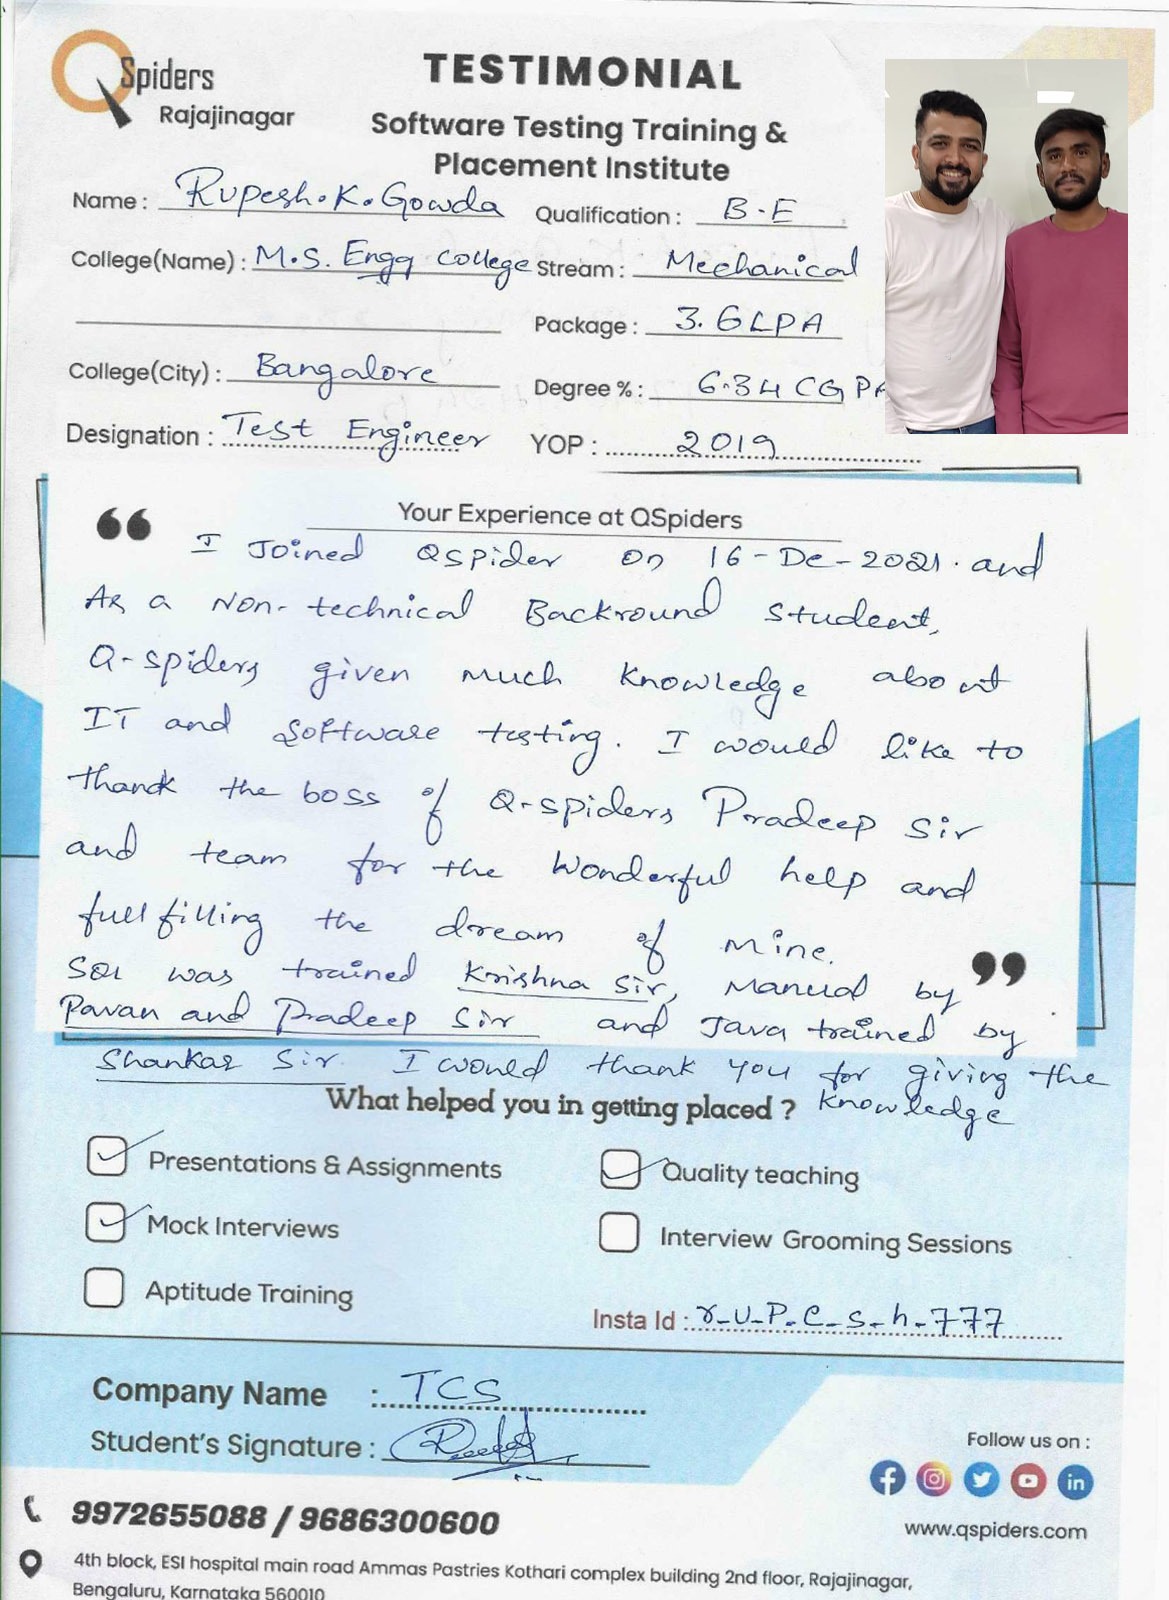 QSpiders
Rajajinagar
TESTIMONIAL
Software Testing Training &
Placement Institute
Name : Rupesh.K.Gowda
Qualification : B.E
College(Name) : M.S. Engg College
Stream : Mechanical
Package : 3.6LPA
College(City) : Bangalore
Degree % : 6.34 CGPA
Designation : Test Engineer
YOP : 2019
Your Experience at QSpiders
“ I Joined QSpider on 16-De-2021. and
As a Non-technical Backround student,
Q-spiders given much knowledge about
IT and Software testing. I would like to
thank the boss of Q-spiders Pradeep Sir
and team for the wonderful help and
fullfilling the dream of mine.
SQL was trained Krishna Sir, Manual by ”
Pavan and Pradeep Sir and Java trained by
Shankar Sir. I would thank you for giving the
knowledge
What helped you in getting placed ?
Presentations & Assignments
Quality teaching
Mock Interviews
Interview Grooming Sessions
Aptitude Training
Insta Id : r_u_p_e_s_h_777
Company Name : TCS
Student's Signature :
Follow us on :
9972655088 / 9686300600
www.qspiders.com
4th block, ESI hospital main road Ammas Pastries Kothari complex building 2nd floor, Rajajinagar,
Bengaluru, Karnataka 560010